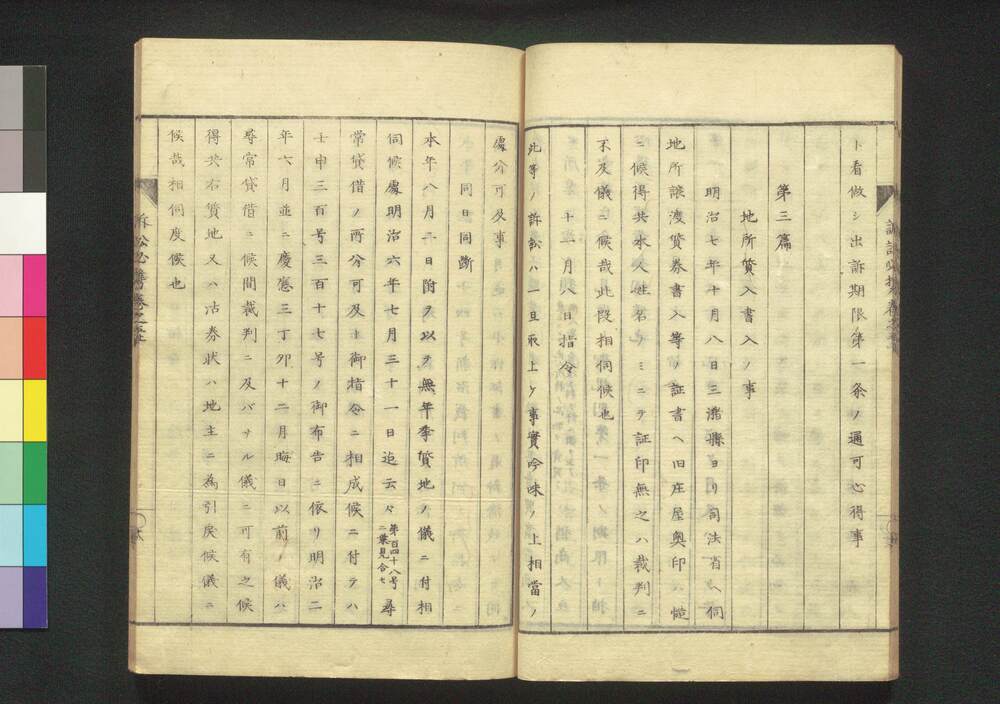 ト看做シ出訴期限第一条ノ通可心得事
第三篇
地所質入書入ノ事
明治七年十月八日三潴縣ヨリ司法省ヘ伺
地所譲渡質券書入等ノ証書ヘ旧庄屋奥印ハ慥
ニ候得共本人姓名ノミニテ証印無之ハ裁判ニ
不及儀ニ候哉此段相伺候也
十一月八日指令
此等ノ訴訟ハ一旦取上ケ事實吟味ノ上相當ノ
處分可及事
同日同斷
本年八月二日附ヲ以テ無年季質地ノ儀ニ付相
伺候處明治六年七月三十一日迄云々第百四十八号ニ葉見合セ尋
常貸借ノ所分可及ト御指令ニ相成候ニ付テハ
壬申三百号三百十七号ノ御布告ニ依リ明治二
年六月並ニ慶應三丁卯十二月晦日以前ノ儀ハ
尋常貸借ニ候間裁判ニ及バサル儀ニ可有之候
得共右質地又ハ沽券状ハ地主ニ為引戻候儀ニ
候哉相伺度候也
訴訟必携巻之五